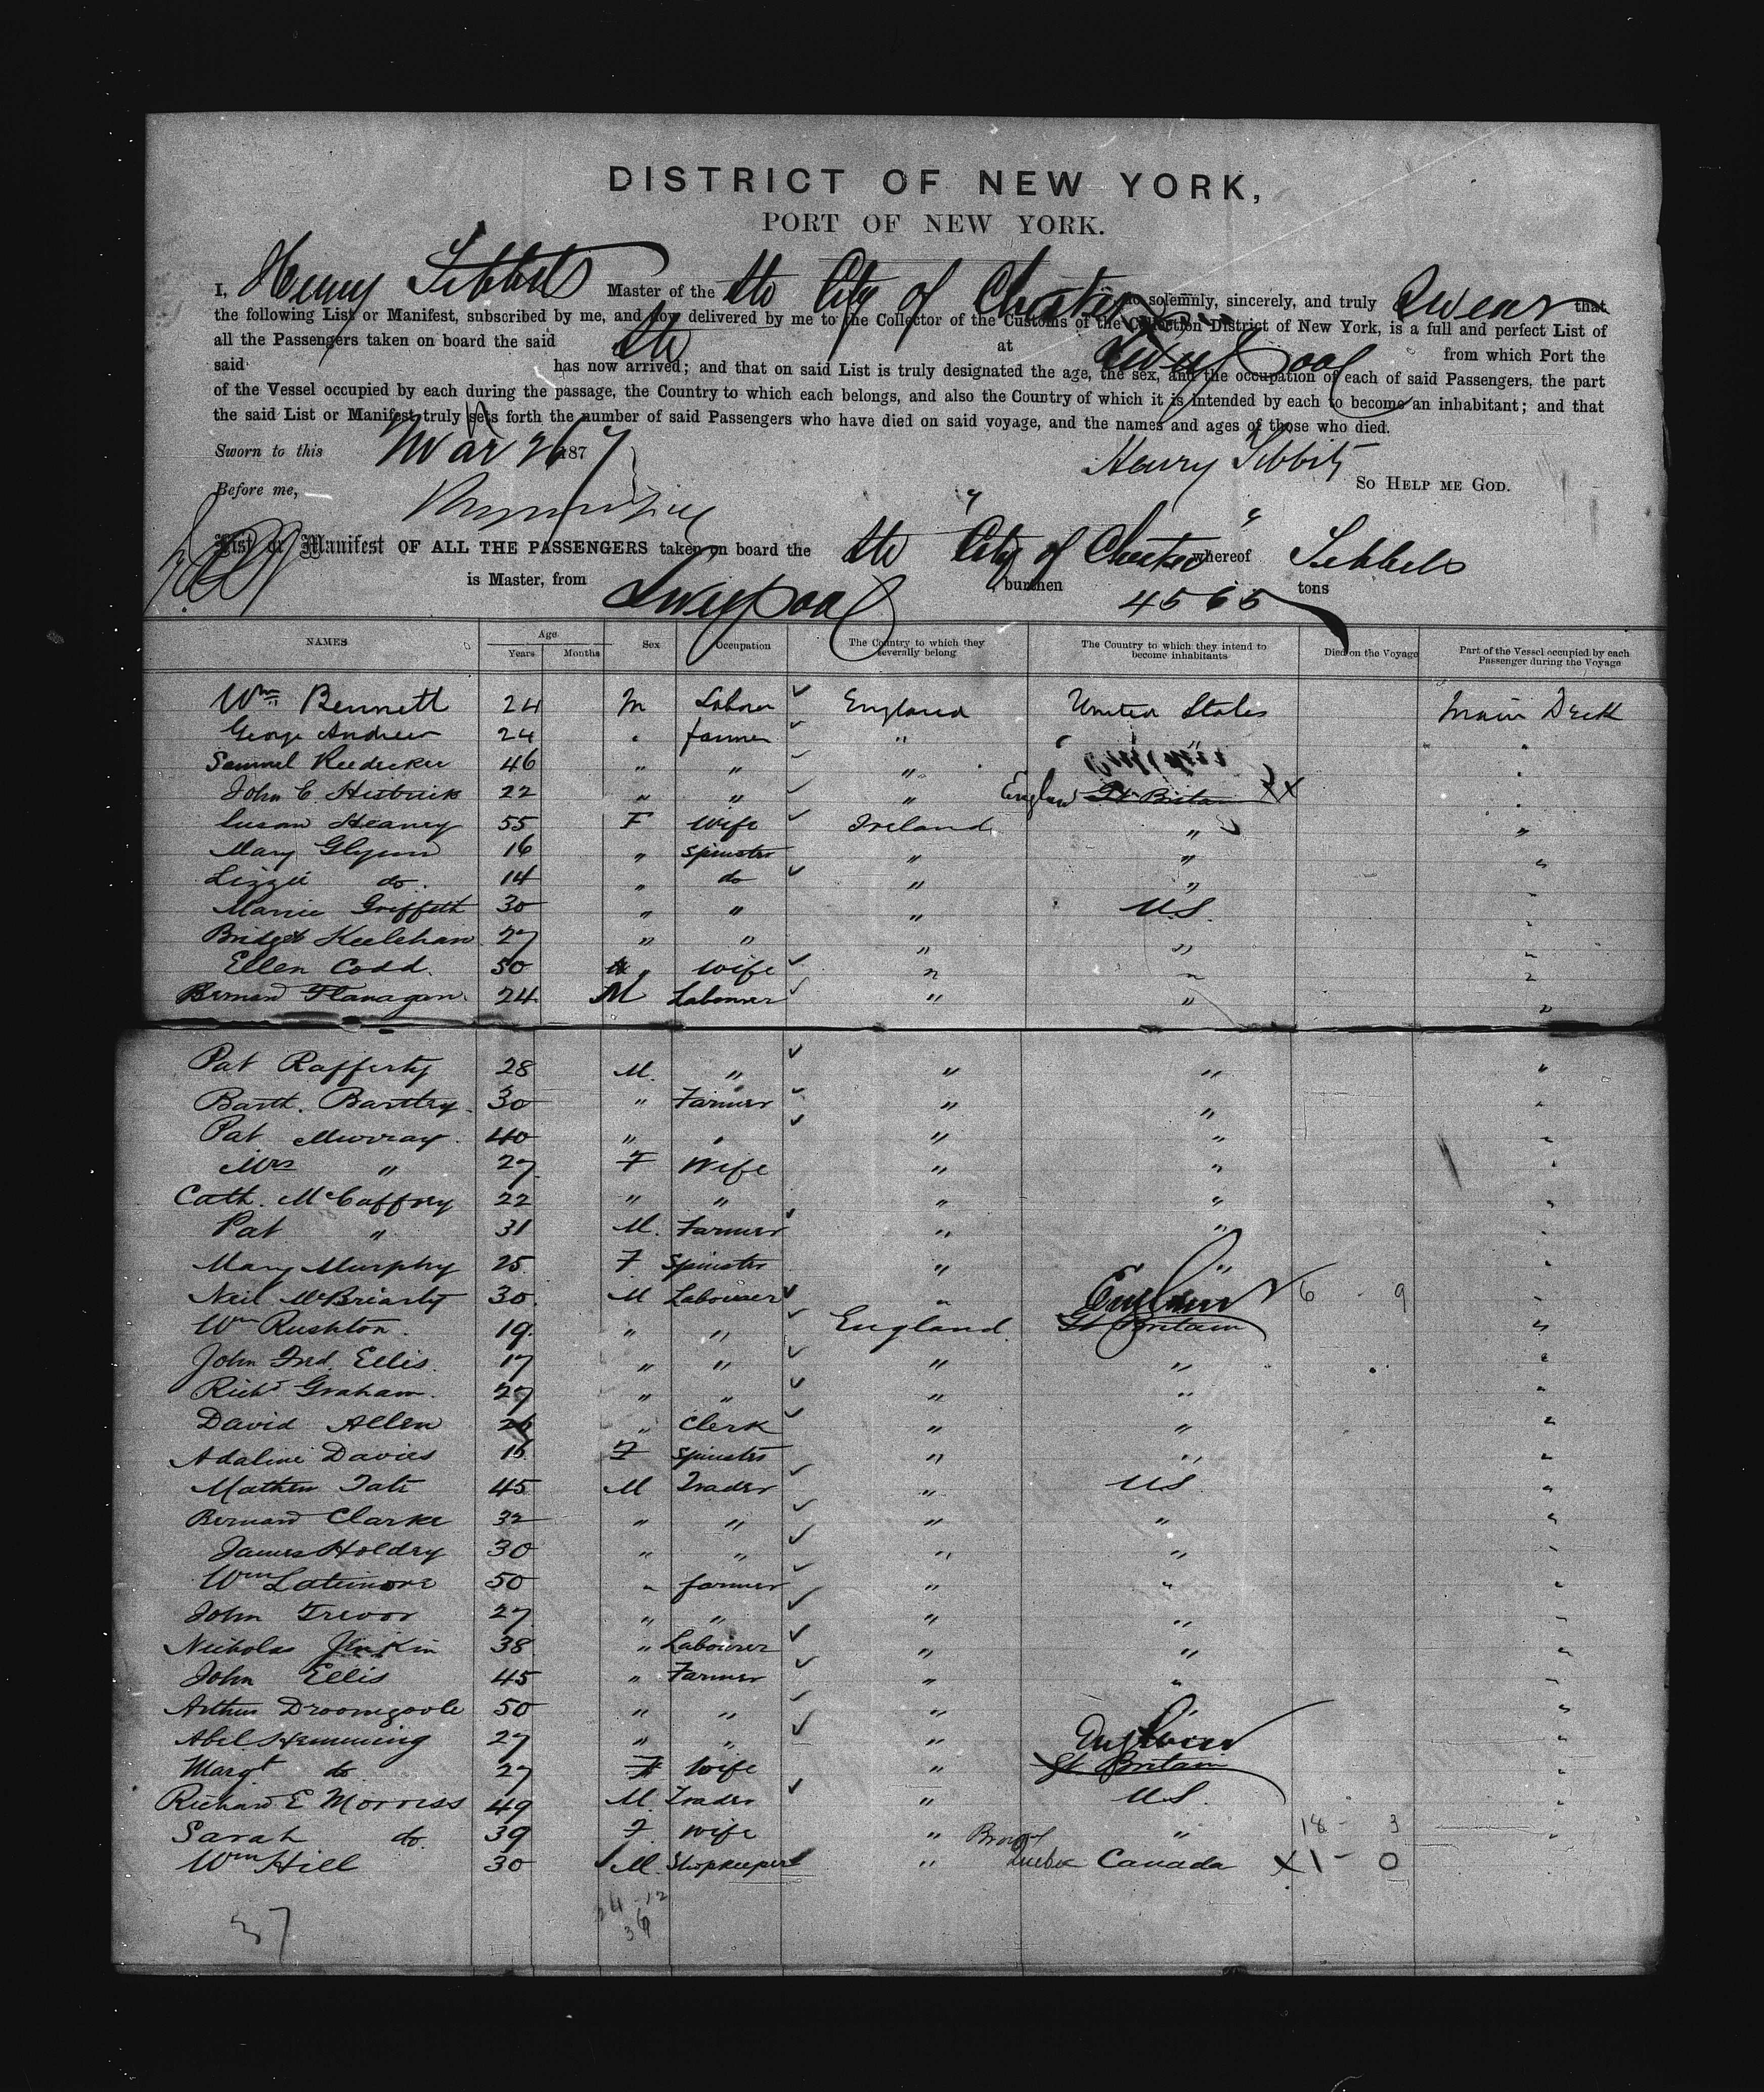 DISTRICT OF NEW YORK,
PORT OF NEW YORK.
I, Henry Tibbits Master of the Str City of Chester do solemnly, sincerely, and truly Swear that
the following List or Manifest, subscribed by me, and now delivered by me to the Collector of the Customs of the Collection District of New York, is a full and perfect List of
all the Passengers taken on board the said Str at Liverpool from which Port the
said has now arrived; and that on said List is truly designated the age, the sex, and the occupation of each of said Passengers, the part
of the Vessel occupied by each during the passage, the Country to which each belongs, and also the Country of which it is intended by each to become an inhabitant; and that
the said List or Manifest truly sets forth the number of said Passengers who have died on said voyage, and the names and ages of those who died.
Sworn to this Mar 26 1877 Henry Tibbits
So Help me God.
Before me,
List or Manifest OF ALL THE PASSENGERS taken on board the Str "City of Chester" whereof Tibbits
is Master, from Liverpool burthen 4565 tons
NAMES Age Years Months Sex Occupation The Country to which they severally belong The Country to which they intend to become inhabitants Died on the Voyage Part of the Vessel occupied by each Passenger during the Voyage
Wm Bennett 24 M Labour England United States Main Deck
George Andrew 24 " farmer " "
Samuel 46 " " " "
John C. 22 " " " England Gt Britain XX "
Susan Heaney 55 F Wife Ireland " "
Mary Glynn 16 " Spinster " " "
Lizzie do. 14 " do " " "
Griffith 30 " " " U.S. "
Bridget Keelehan 27 " " " " "
Ellen Codd. 50 " Wife " " "
Bernard Flanagan 24 M Labourer " " "
Pat Rafferty 28 M. " " " "
Barth. Bartley 30 " Farmer " " "
Pat Murray 40 " " " " "
Mrs " 27 F Wife " " "
Cath. McCaffrey 22 " " " " "
Pat " 31 M. Farmer " " "
Mary Murphy 25 F Spinster " " "
Neil McBriarty 30 M Labourer " England 6 - 9 "
Wm Rushton. 19 " " England. Gt Britain "
John Fred. Ellis. 17 " " " " "
Richd Graham. 27 " " " " "
David Allen " Clerk " " "
Adaline Davies 16 F Spinster " " "
Mathew Tate 45 M Trader " US "
Bernard Clarke 32 " " " " "
James Holdry 30 " " " " "
Wm Latimore 50 " farmer " " "
John Trevor 27 " " " " "
Nicholas Jenkin 38 " Labourer " " "
John Ellis 45 " Farmer " " "
Arthur Droomgoole 50 " " " " "
Abel Hemming 27 " " " England "
Margt do 27 F Wife " Gt. Britain "
Richard E Morriss 49 M. Trader " U.S. "
Sarah do. 39 F. Wife " " 18 - 3 "
Wm Hill 30 M. Shopkeeper " Quebec Canada X 1 - 0
24 - 12
36
37